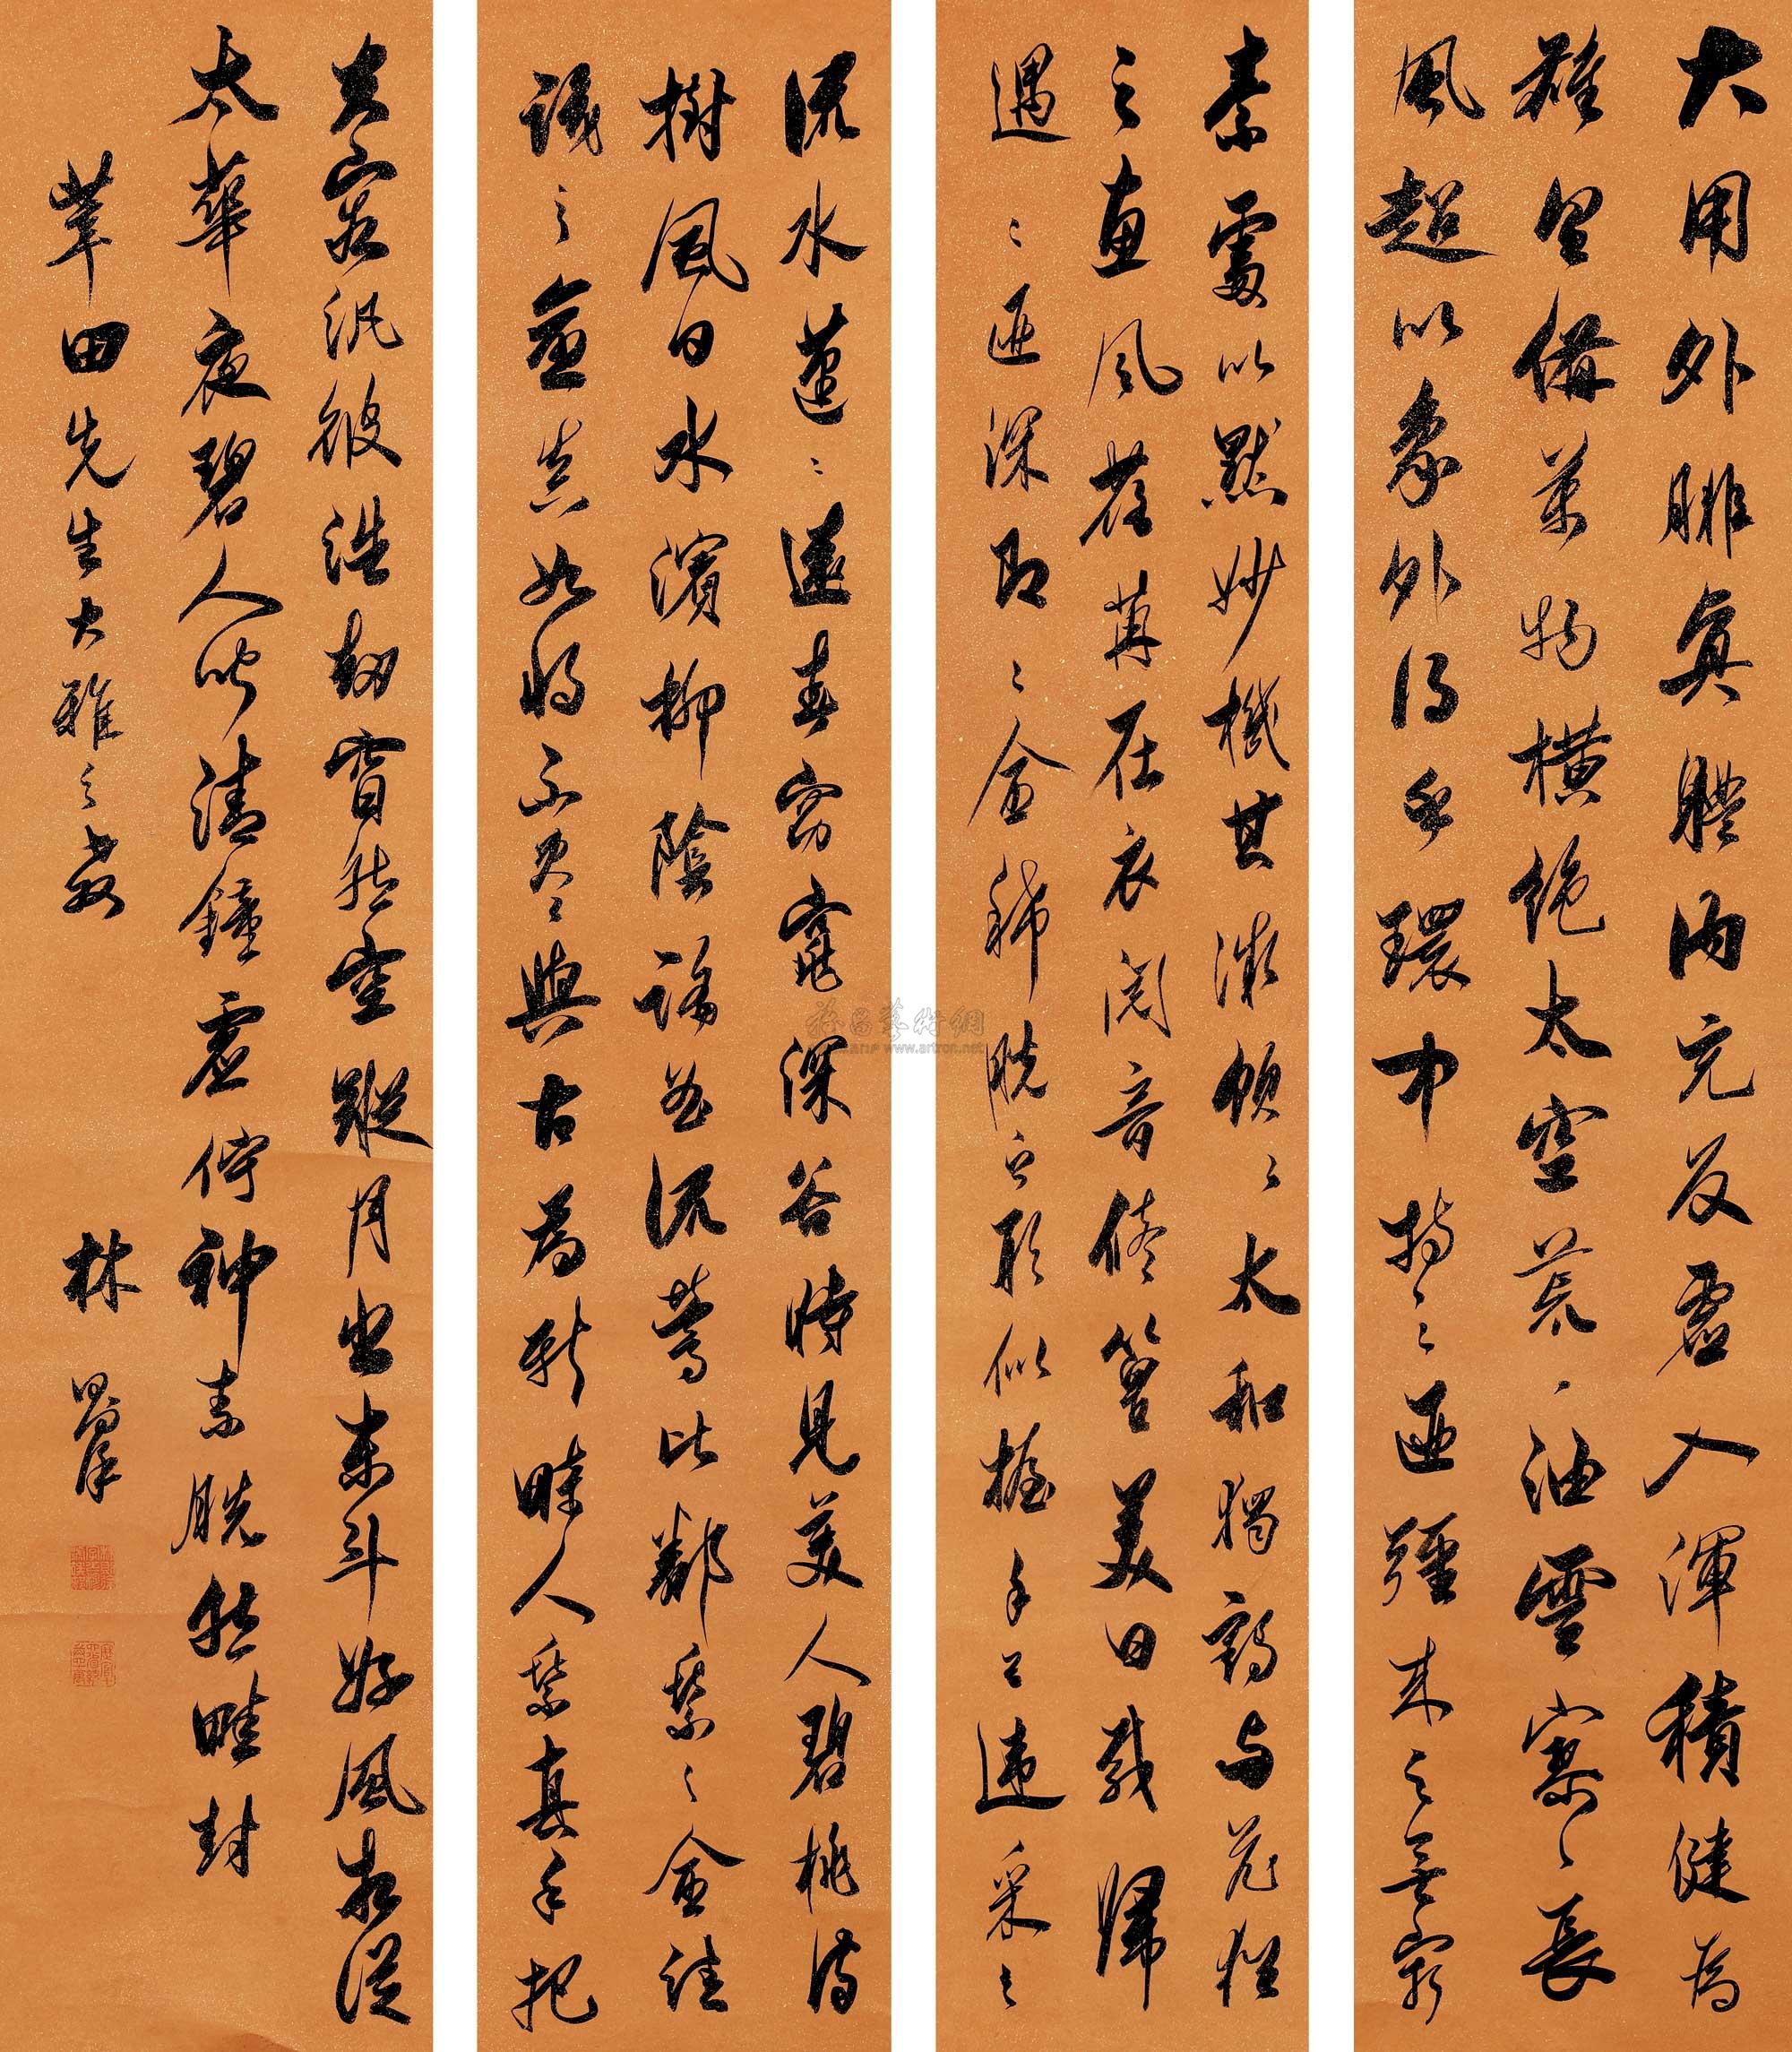 大用外腓真體內充反虛入渾積健為
雄具備萬物橫絕太空荒荒油雲寥寥長
風超以象外得其環中持之匪彊來之無窮
素處以默妙機其微飲之太和獨鶴與飛猶
之惠風荏苒在衣閱音修篁美曰載歸
遇之匪深即之愈稀脫有形似握手已違采之
流水蓬蓬遠春窈窕深谷時見美人碧桃滿
樹風日水濱柳陰路曲流鶯比鄰乘之愈往
識之愈真如將不盡與古為新畸人乘真手把
芙蓉汎彼浩劫窅然空蹤月出東斗好風相從
太華夜碧人聞清鐘虛佇神素脫然畦封
莘田先生大雅之教
林
雅昌藝術網
www.artron.net